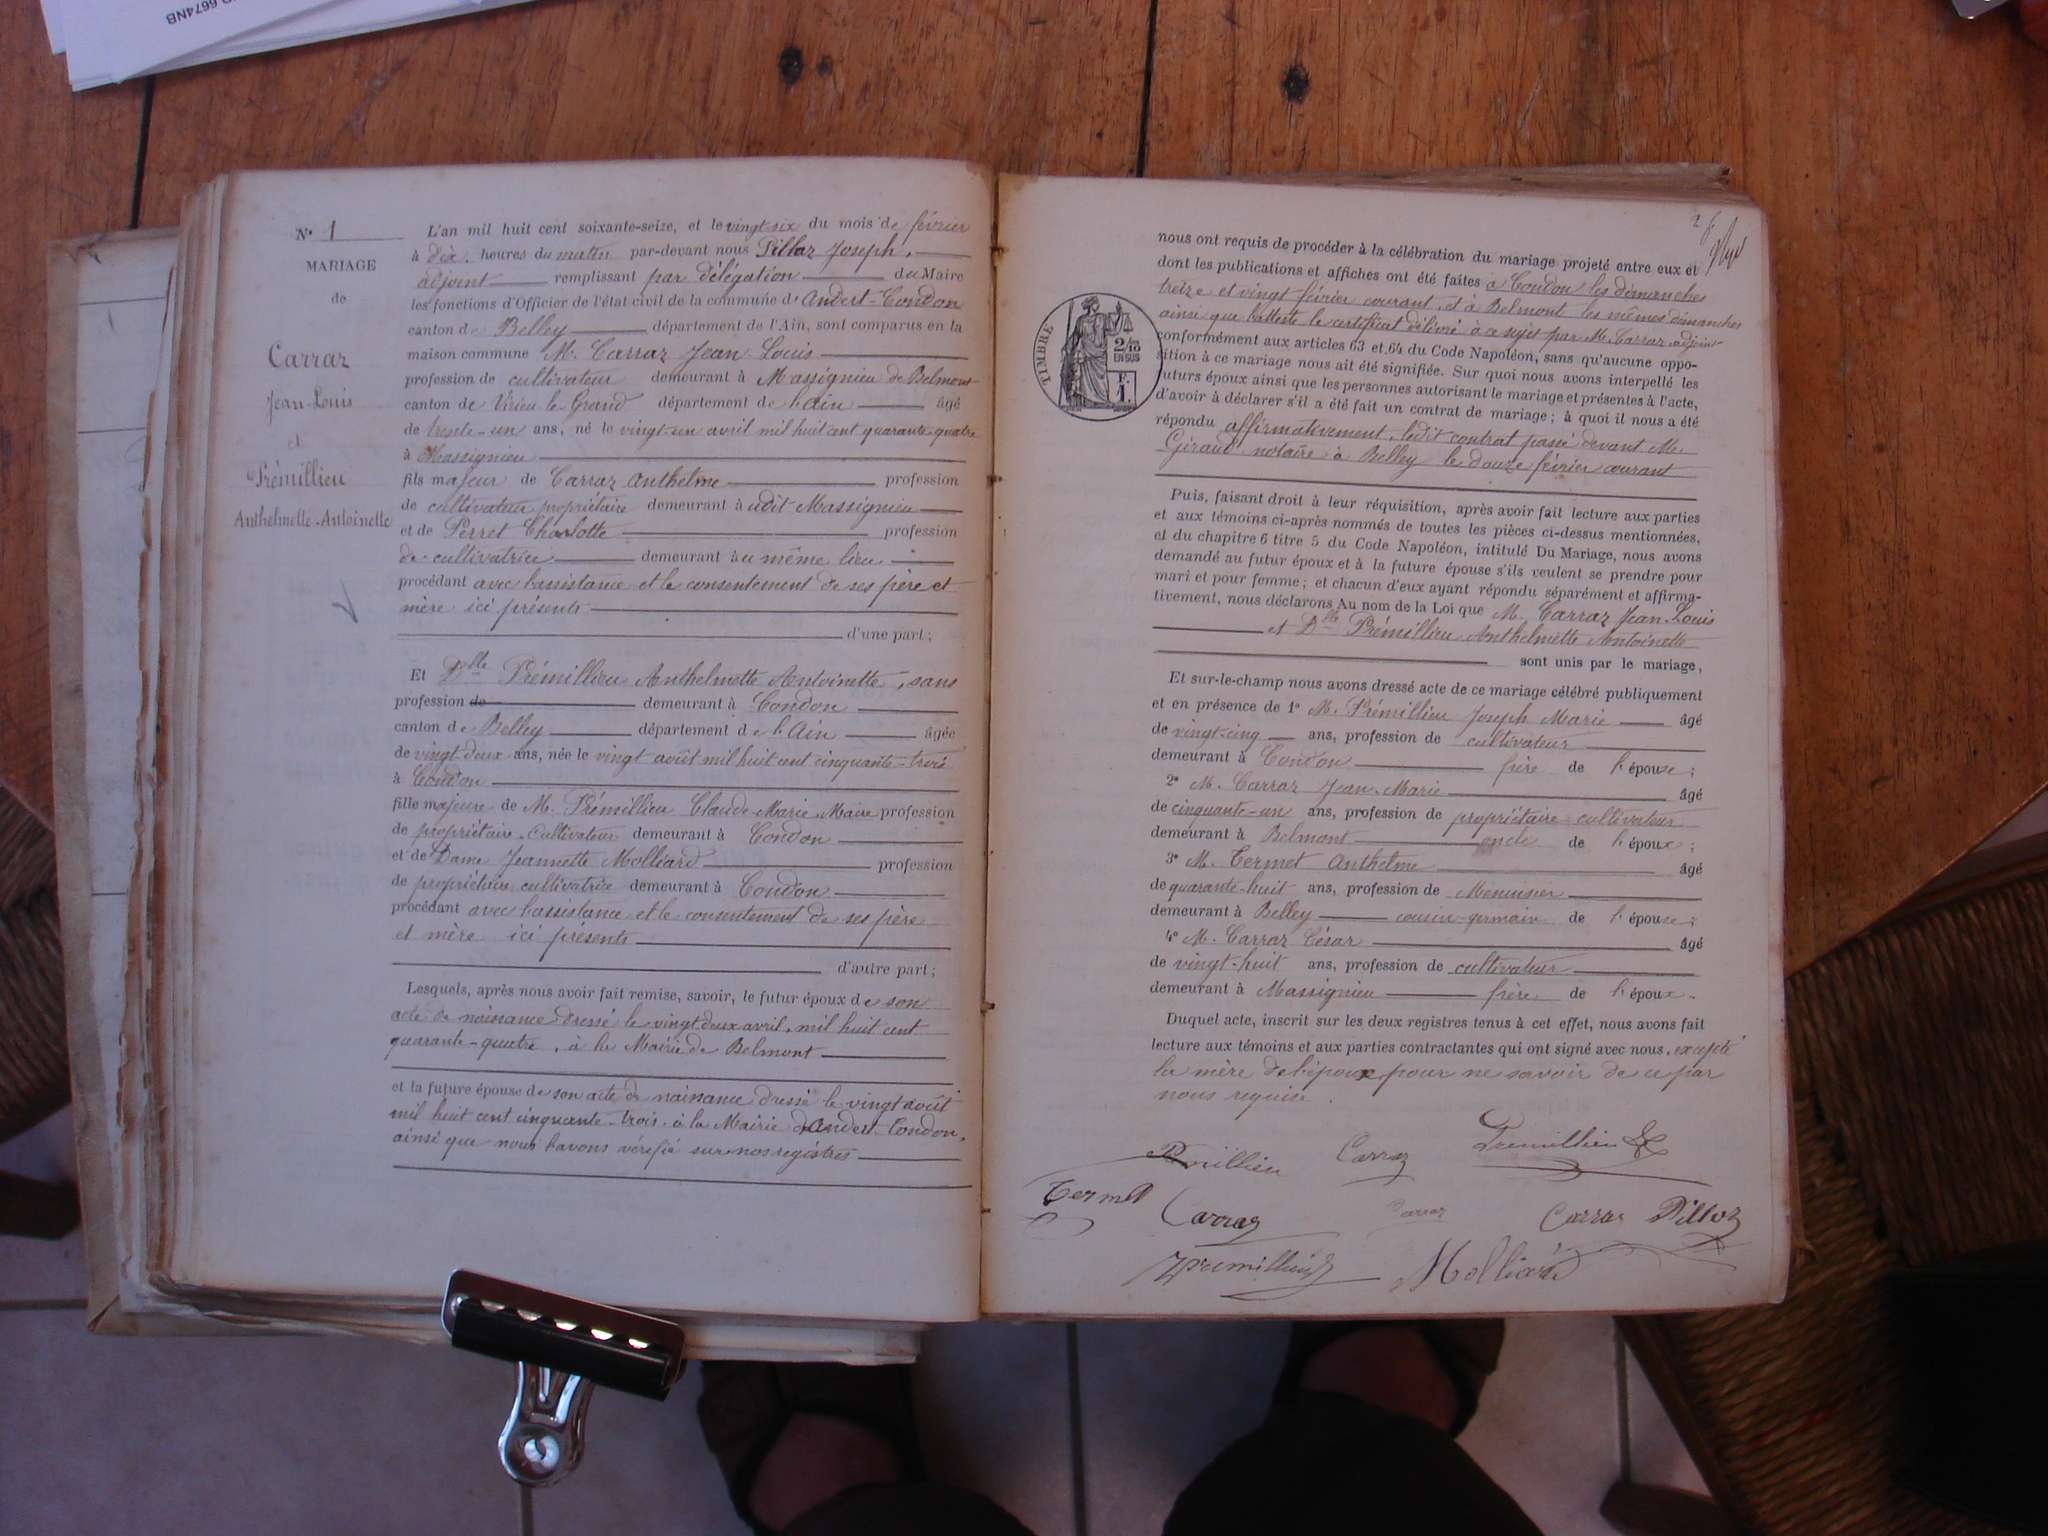 6674NB
N° 1
MARIAGE
de
Carraz
Jean-Louis
et
Prémillieu
Anthelmette-Antoinette
L'an mil huit cent soixante-seize, et le vingt-six du mois de février
à dix heures du matin par-devant nous Pillaz Joseph,
adjoint remplissant par délégation du Maire
les fonctions d'Officier de l'état civil de la commune d'Andert-Condon
canton de Belley département de l'Ain, sont comparus en la
maison commune M. Carraz Jean-Louis
profession de cultivateur demeurant à Massignieu de Belmont
canton de Virieu-le-Grand département de l'ain âgé
de trente-un ans, né le vingt-un avril mil huit cent quarante-quatre
à Massignieu
fils majeur de Carraz Anthelme profession
de cultivateur propriétaire demeurant à udit Massignieu
et de Perret Charlotte profession
de cultivatrice demeurant au même lieu
procédant avec l'assistance et le consentement de ses père et
mère ici présents
d'une part;
Et Dlle Prémillieu Anthelmette Antoinette, sans
profession de demeurant à Condon
canton de Belley département de l'Ain âgée
de vingt-deux ans, née le vingt août mil huit cent cinquante-trois
à Condon
fille majeure de M. Prémillieu Claude-Marie, Maire profession
de propriétaire-Cultivateur demeurant à Condon
et de Dame Jeannette Molliard profession
de propriétaire cultivatrice demeurant à Condon
procédant avec l'assistance et le consentement de ses père
et mère ici présents
d'autre part;
Lesquels, après nous avoir fait remise, savoir, le futur époux de son
acte de naissance dressé le vingt deux avril, mil huit cent
quarante-quatre, à la Mairie de Belmont
et la future épouse de son acte de naissance dressé le vingt août
mil huit cent cinquante-trois, à la Mairie d'Andert-Condon,
ainsi que nous l'avons vérifié sur nos registres
2
TIMBRE
2/10
EN SUS
F.
1.
nous ont requis de procéder à la célébration du mariage projeté entre eux et
dont les publications et affiches ont été faites à Condon les dimanches
treize et vingt février courant, et à Belmont les mêmes dimanches
ainsi que l'atteste le certificat délivré à ce sujet par M. Carraz adjoint
conformément aux articles 63 et 64 du Code Napoléon, sans qu'aucune oppo-
sition à ce mariage nous ait été signifiée. Sur quoi nous avons interpellé les
futurs époux ainsi que les personnes autorisant le mariage et présentes à l'acte,
d'avoir à déclarer s'il a été fait un contrat de mariage; à quoi il nous a été
répondu affirmativement, ledit contrat passé devant M.
Giraud notaire à Belley le douze février courant
Puis, faisant droit à leur réquisition, après avoir fait lecture aux parties
et aux témoins ci-après nommés de toutes les pièces ci-dessus mentionnées,
et du chapitre 6 titre 5 du Code Napoléon, intitulé Du Mariage, nous avons
demandé au futur époux et à la future épouse s'ils veulent se prendre pour
mari et pour femme; et chacun d'eux ayant répondu séparément et affirma-
tivement, nous déclarons Au nom de la Loi que M. Carraz Jean-Louis
et Dlle Prémillieu Anthelmette Antoinette
sont unis par le mariage,
Et sur-le-champ nous avons dressé acte de ce mariage célébré publiquement
et en présence de 1° M. Prémillieu Joseph Marie âgé
de vingt-cinq ans, profession de cultivateur
demeurant à Condon frère de l'épouse;
2° M. Carraz Jean-Marie âgé
de cinquante-un ans, profession de propriétaire cultivateur
demeurant à Belmont oncle de l'époux;
3° M. Termet Anthelme âgé
de quarante-huit ans, profession de Menuisier
demeurant à Belley cousin-germain de l'épouse;
4° M. Carraz César âgé
de vingt-huit ans, profession de cultivateur
demeurant à Massignieu frère de l'époux.
Duquel acte, inscrit sur les deux registres tenus à cet effet, nous avons fait
lecture aux témoins et aux parties contractantes qui ont signé avec nous, excepté
la mère de l'époux, pour ne savoir de ce par
nous requise.
Prémillieu Carraz Premillieu
Termet Carraz Carraz Carraz Pillaz
Premillieu Molliard